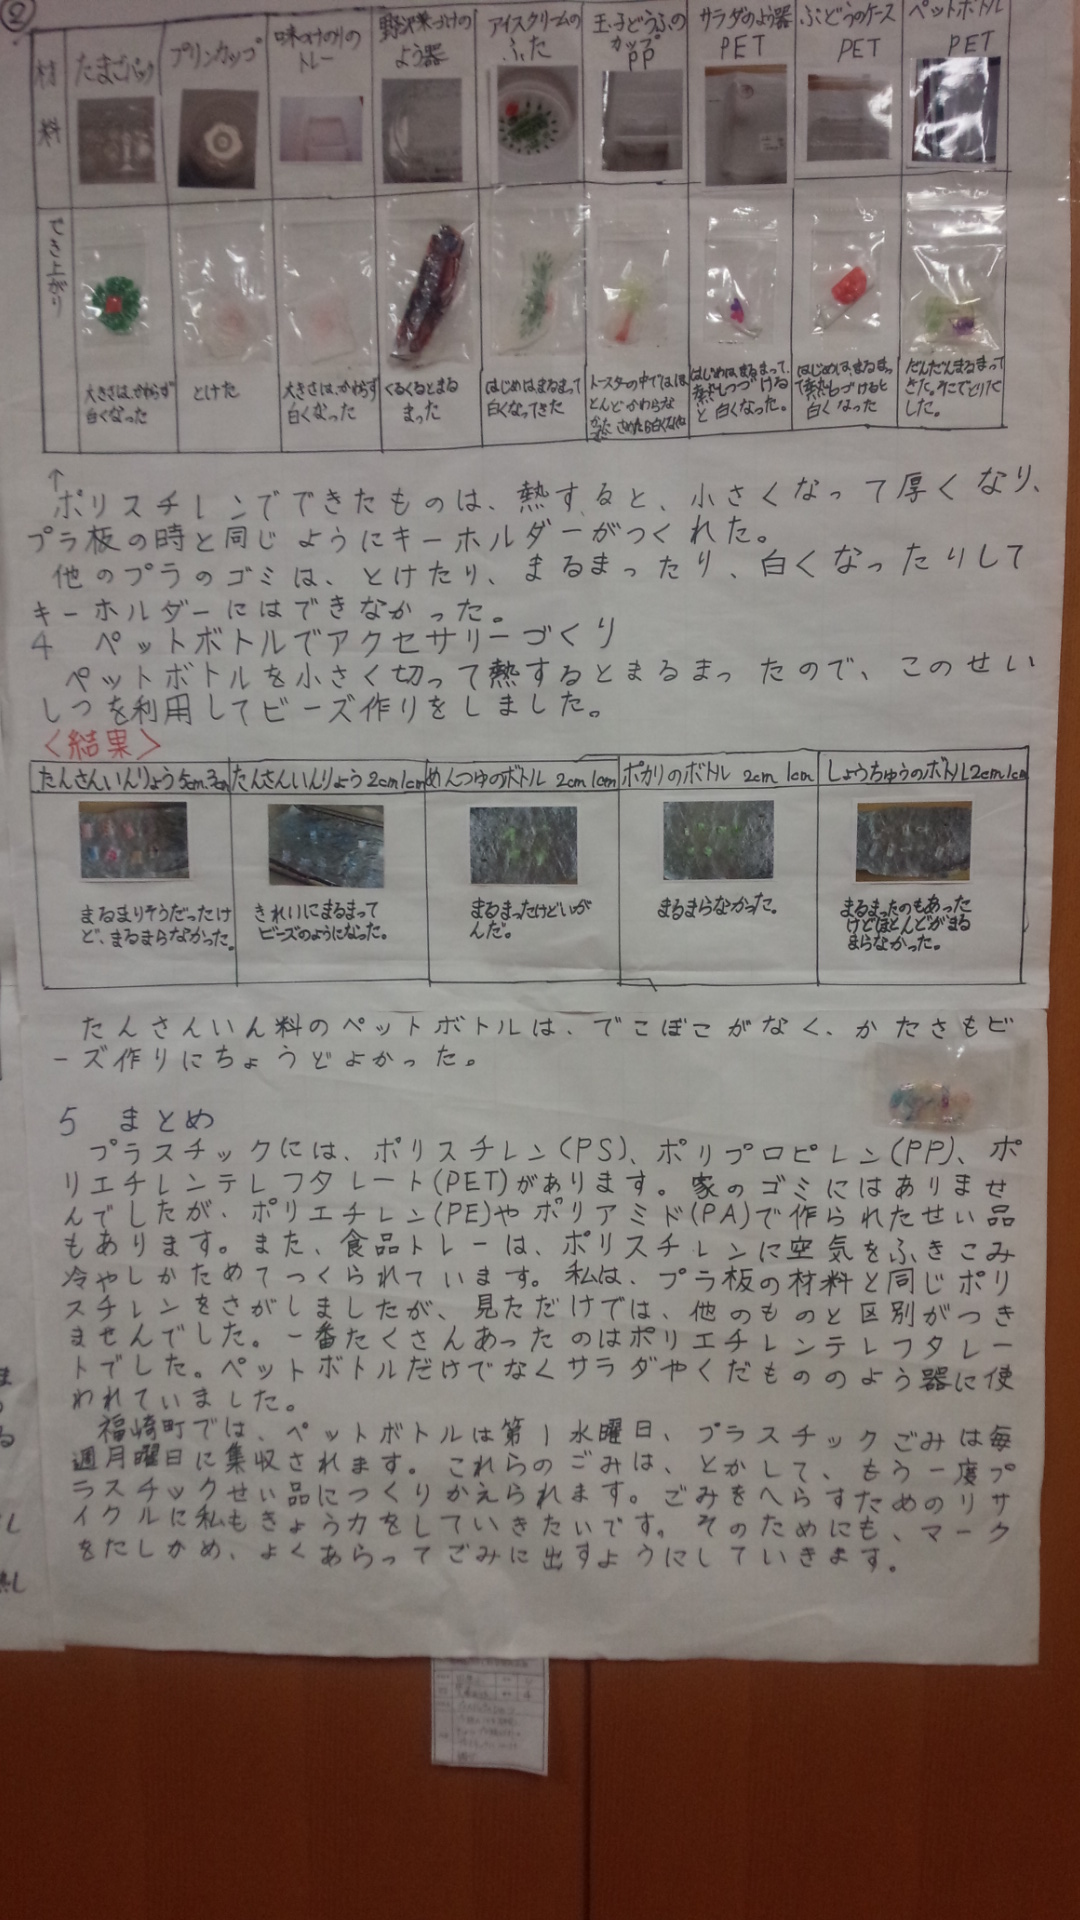 ②
材料
たまごパック
プリンカップ
味つけのりの
トレー
野沢菜づけの
よう器
アイスクリームの
ふた
玉子どうふの
カップ
PP
サラダのよう器
PET
ぶどうのケース
PET
ペットボトル
PET
でき上がり
大きさは、かわらず
白くなった
とけた
大きさは、かわらず
白くなった
くるくるとまる
まった
はじめは、まるまって
白くなってきた
トースターの中ではほ
とんどかわらな
はじめは、まるまって、
熱しつづける
と白くなった。
はじめは、まるまっ
て熱しつづけると
白くなった
だんだんまるまって
きた。そこでとりだ
した。
↑
ポリスチレンでできたものは、熱すると、小さくなって厚くなり、
プラ板の時と同じようにキーホルダーがつくれた。
他のプラのゴミは、とけたり、まるまったり、白くなったりして
キーホルダーにはできなかった。
4 ペットボトルでアクセサリーづくり
ペットボトルを小さく切って熱するとまるまったので、このせい
しつを利用してビーズ作りをしました。
〈結果〉
たんさんいんりょう5cm3cm
たんさんいんりょう2cm1cm
めんつゆのボトル 2cm1cm
ポカリのボトル 2cm1cm
しょうちゅうのボトル2cm1cm
まるまりそうだったけ
ど、まるまらなかった。
きれいにまるまって
ビーズのようになった。
まるまったけどいが
んだ。
まるまらなかった。
まるまったのもあった
けどほとんどがまる
まらなかった。
たんさんいん料のペットボトルは、でこぼこがなく、かたさもビ
ーズ作りにちょうどよかった。
5 まとめ
プラスチックには、ポリスチレン(PS)、ポリプロピレン(PP)、ポ
リエチレンテレフタレート(PET)があります。家のゴミにはありませ
んでしたが、ポリエチレン(PE)やポリアミド(PA)で作られたせい品
もあります。また、食品トレーは、ポリスチレンに空気をふきこみ
冷やしかためてつくられています。私は、プラ板の材料と同じポリ
スチレンをさがしましたが、見ただけでは、他のものと区別がつき
ませんでした。一番たくさんあったのはポリエチレンテレフタレー
トでした。ペットボトルだけでなくサラダやくだもののよう器に使
われていました。
福崎町では、ペットボトルは第1水曜日、プラスチックごみは毎
週月曜日に集収されます。これらのごみは、とかして、もう一度プ
ラスチックせい品につくりかえられます。ごみをへらすためのリサ
イクルに私もきょう力をしていきたいです。そのためにも、マーク
をたしかめ、よくあらってごみに出すようにしていきます。